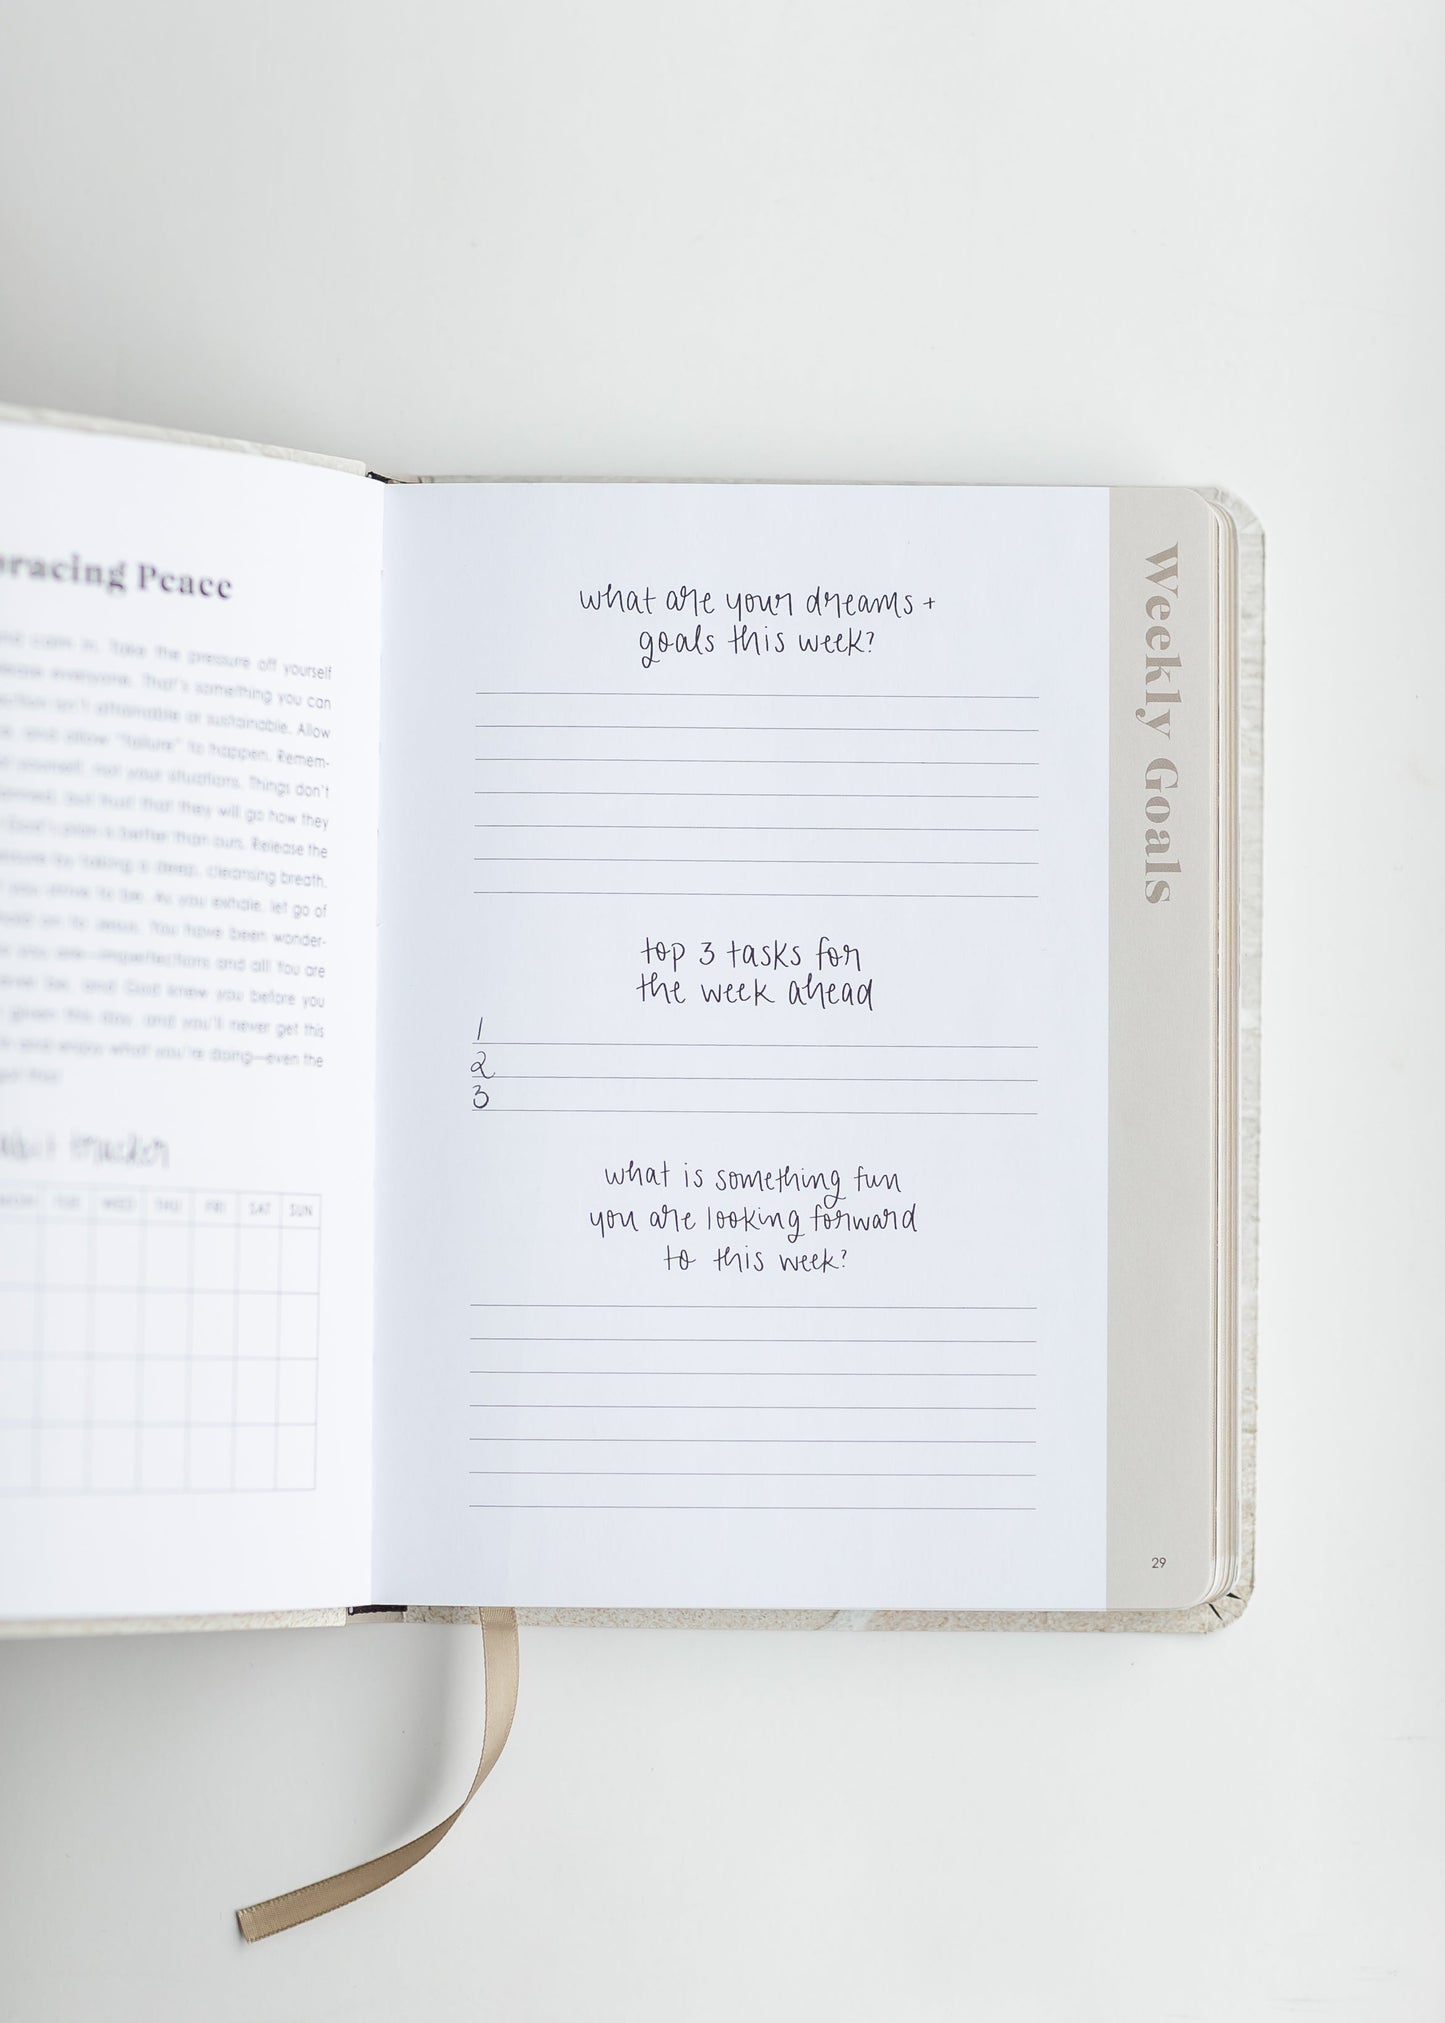 Peace
Take the pressure off yourself
everyone. That's something you can
isn't attainable or sustainable. Allow
and allow "failure" to happen. Remem-
yourself, not your situations. Things don't
but trust that they will go how they
God's plan is better than ours. Release the
by taking a deep, cleansing breath.
you strive to be. As you exhale, let go of
on to Jesus. You have been wonder-
you are—imperfections and all! You are
be, and God knew you before you
given this day, and you'll never get this
and enjoy what you're doing—even the
tracker
MON TUE WED THU FRI SAT SUN
what are your dreams +
goals this week?
top 3 tasks for
the week ahead
1
2
3
what is something fun
you are looking forward
to this week?
Weekly Goals
29